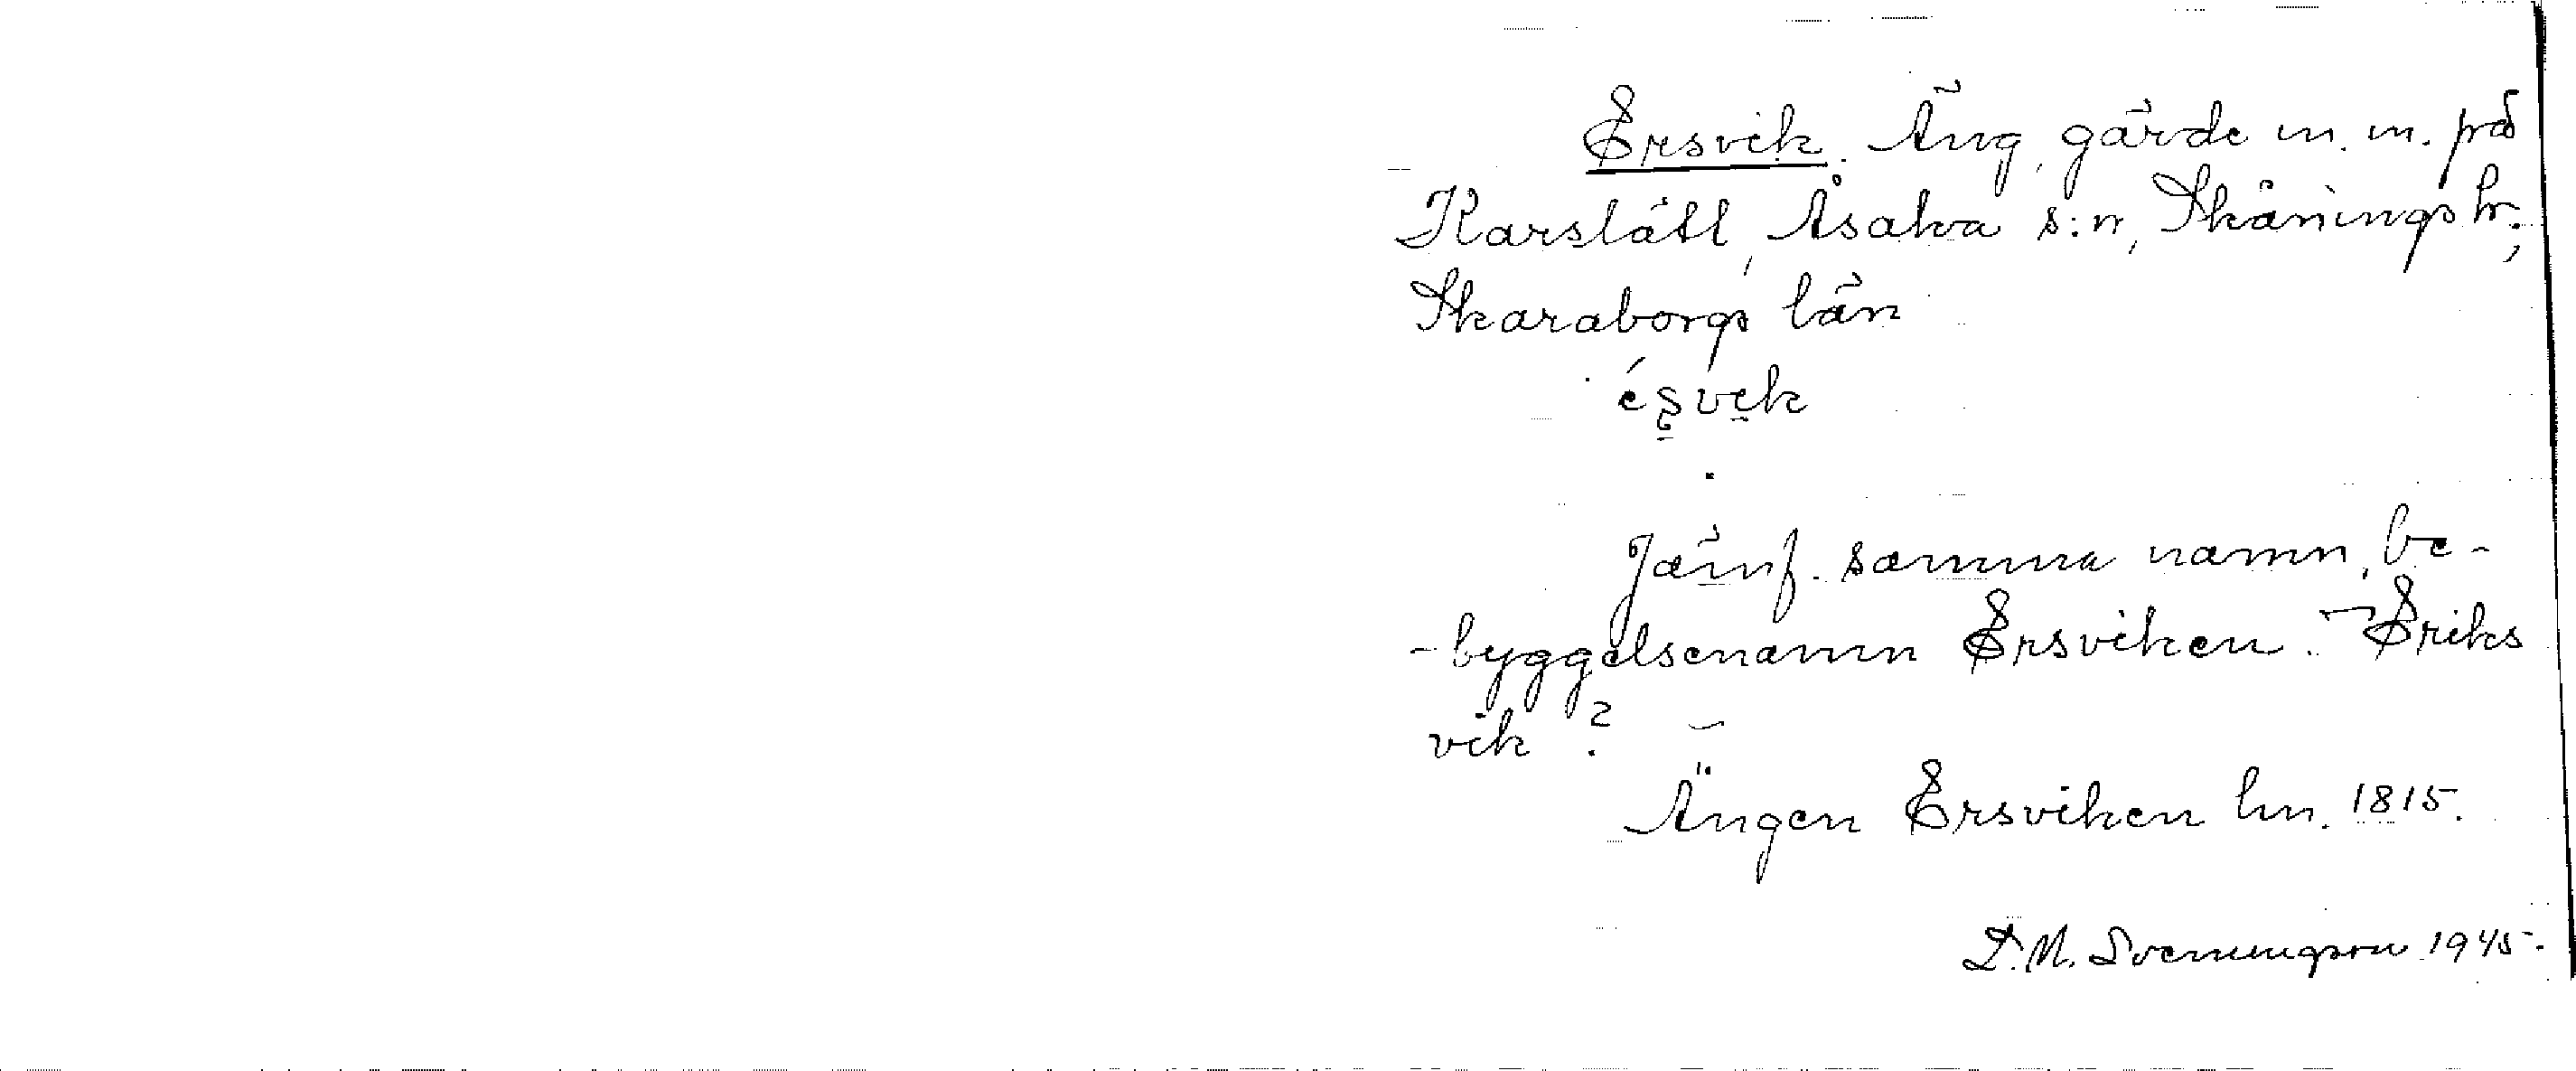 Ersvik. Äng, gärde m. m. på
Karslätt, Åsaka s:n, Skånings hr,
Skaraborgs län
éʂvek
Jämf. samma namn, be-
-byggelsenamn Ersviken. Eriks
vik?
Ängen Ersviken hm. 1815.
D. M. Svenningson 1945.